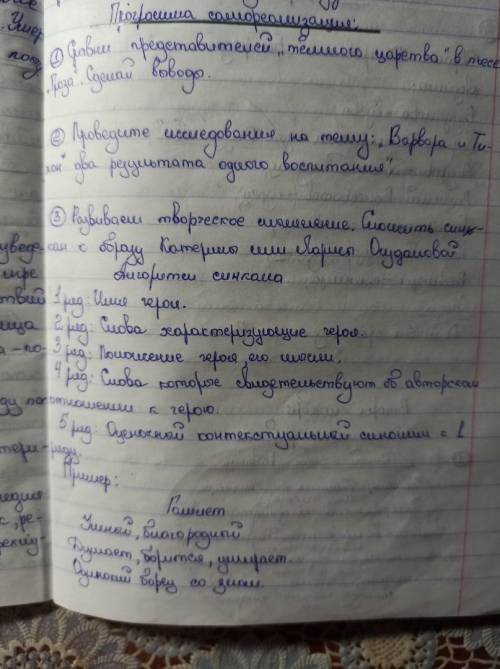 Программа самореализации:
① Сравни представителей „тёмного царства" в пьесе
„Гроза". Сделай выводы.
② Проведите исследования на тему: „Варвара и Ти-
хон" два результата одного воспитания".
③ Развиваем творческое мышление. Сочинить синк-
вен о образу Катерины или Ларисы Огудаловой
Алгоритм синквина
1 ряд: Имя героя.
2 ряд: Слова характеризующие героя.
3 ряд: Положение героя, его мысли.
4 ряд: Слова которое свидетельствуют об авторском
отношении к герою.
5 ряд: Оценочной контекстуальной синоним с 1
ряду.
Пример:
Гамлет
Умной, благородной
Думает, борится, умирает.
Одинокий борец со злом.